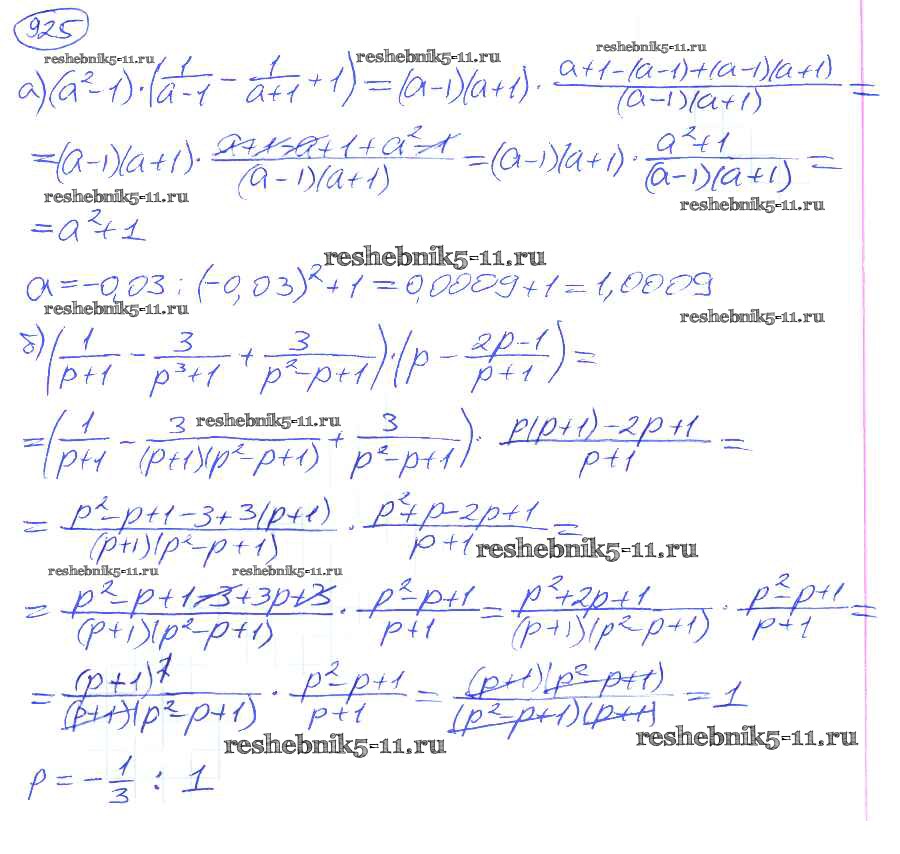 925
reshebnik5-11.ru reshebnik5-11.ru reshebnik5-11.ru
а) (a²-1)·(1/(a-1) - 1/(a+1) + 1) = (a-1)(a+1) · (a+1-(a-1)+(a-1)(a+1))/((a-1)(a+1)) =
= (a-1)(a+1) · (a+1-a+1+a²-1)/((a-1)(a+1)) = (a-1)(a+1) · (a²+1)/((a-1)(a+1)) =
reshebnik5-11.ru reshebnik5-11.ru
= a²+1
reshebnik5-11.ru
a = -0,03 : (-0,03)²+1 = 0,0009+1 = 1,0009
reshebnik5-11.ru reshebnik5-11.ru
б) (1/(p+1) - 3/(p³+1) + 3/(p²-p+1))·(p - (2p-1)/(p+1)) =
reshebnik5-11.ru
= (1/(p+1) - 3/((p+1)(p²-p+1)) + 3/(p²-p+1)) · (p(p+1)-2p+1)/(p+1) =
= (p²-p+1-3+3(p+1))/((p+1)(p²-p+1)) · (p²+p-2p+1)/(p+1) =
reshebnik5-11.ru
reshebnik5-11.ru reshebnik5-11.ru
= (p²-p+1-3+3p+3)/((p+1)(p²-p+1)) · (p²-p+1)/(p+1) = (p²+2p+1)/((p+1)(p²-p+1)) · (p²-p+1)/(p+1) =
= (p+1)²/((p+1)(p²-p+1)) · (p²-p+1)/(p+1) = ((p+1)(p²-p+1))/((p²-p+1)(p+1)) = 1
reshebnik5-11.ru reshebnik5-11.ru
p = -1/3 : 1